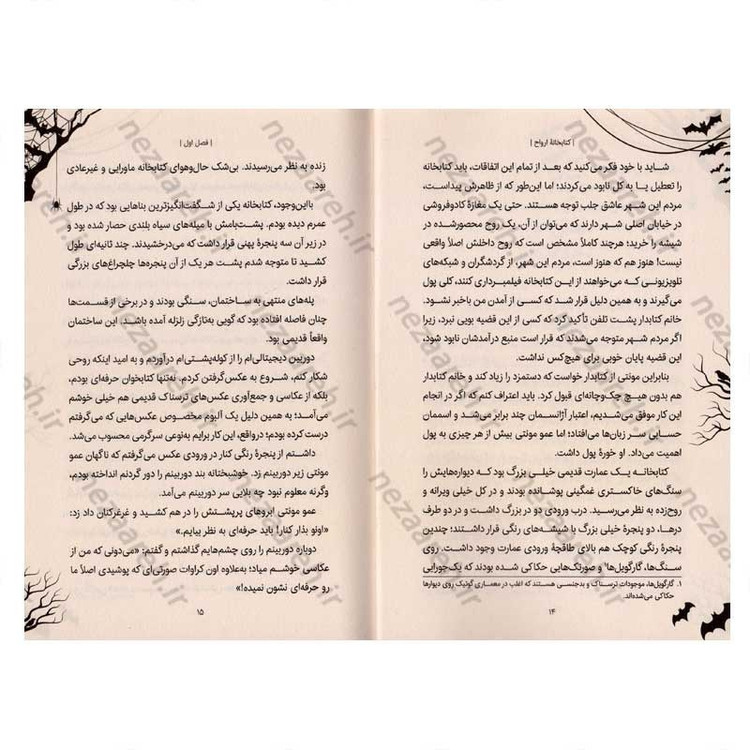 | کتابخانهٔ ارواح |
شاید با خود فکر می‌کنید که بعد از تمام این اتفاقات، باید کتابخانه
را تعطیل یا به کل نابود می‌کردند؛ اما این‌طور که از ظاهرش پیداست،
مردم این شهر عاشق جلب توجه هستند. حتی یک مغازهٔ کادوفروشی
در خیابان اصلی شهر دارند که می‌توان از آن، یک روح محصورشده در
شیشه را خرید؛ هرچند کاملاً مشخص است که روح داخلش اصلاً واقعی
نیست! هنوز هم که هنوز است، مردم این شهر، از گردشگران و شبکه‌های
تلویزیونی که می‌خواهند از این کتابخانه فیلمبرداری کنند، کلی پول
می‌گیرند و به همین دلیل قرار شد که کسی از آمدن من باخبر نشود.
خانم کتابدار پشت تلفن تأکید کرد که کسی از این قضیه بویی نبرد، زیرا
اگر مردم شهر متوجه می‌شدند که قرار است منبع درآمدشان نابود شود،
این قضیه پایان خوبی برای هیچ‌کس نداشت.
بنابراین مونتی از کتابدار خواست که دستمزد را زیاد کند و خانم کتابدار
هم بدون هیچ چک‌وچانه‌ای قبول کرد. باید اعتراف کنم که اگر در انجام
این کار موفق می‌شدیم، اعتبار آژانسمان چند برابر می‌شد و اسممان
حسابی سر زبان‌ها می‌افتاد؛ اما عمو مونتی بیش از هر چیزی به پول
اهمیت می‌داد. او خورهٔ پول داشت.
کتابخانه یک عمارت قدیمی خیلی بزرگ بود که دیواره‌هایش را
سنگ‌های خاکستری غمگینی پوشانده بودند و در کل خیلی ویرانه و
روح‌زده به نظر می‌رسید. درب ورودی دو در بزرگ داشت و در دو طرف
درها، دو پنجرهٔ خیلی بزرگ با شیشه‌های رنگی قرار داشتند؛ چندین
پنجرهٔ رنگی کوچک هم بالای طاقچهٔ ورودی عمارت وجود داشت. روی
سنگ‌ها، گارگویل‌ها¹ و صورتک‌هایی حکاکی شده بودند که یک‌جورایی
۱. گارگویل‌ها، موجودات ترسناک و بدجنسی هستند که اغلب در معماری گوتیک روی دیوارها
حکاکی می‌شده‌اند.
۱۴
| فصل اول |
زنده به نظر می‌رسیدند. بی‌شک حال‌وهوای کتابخانه ماورایی و غیرعادی
بود.
بااین‌وجود، کتابخانه یکی از شگفت‌انگیزترین بناهایی بود که در طول
عمرم دیده بودم. پشت‌بامش با میله‌های سیاه بلندی حصار شده بود و
در زیر آن سه پنجرهٔ پهنی قرار داشت که می‌درخشیدند. چند ثانیه‌ای طول
کشید تا متوجه شدم پشت هر یک از آن پنجره‌ها چلچراغ‌های بزرگی
قرار داشت.
پله‌های منتهی به ساختمان، سنگی بودند و در برخی از قسمت‌ها
چنان فاصله افتاده بود که گویی به‌تازگی زلزله آمده باشد. این ساختمان
واقعاً قدیمی بود.
دوربین دیجیتالی‌ام را از کوله‌پشتی‌ام درآوردم و به امید اینکه روحی
شکار کنم، شروع به عکس‌گرفتن کردم. نه‌تنها کتابخوان حرفه‌ای بودم،
بلکه از عکاسی و جمع‌آوری عکس‌های ترسناک قدیمی هم خیلی خوشم
می‌آمد؛ به همین دلیل یک آلبوم مخصوص عکس‌هایی که می‌گرفتم
درست کرده بودم؛ درواقع، این کار برایم به‌نوعی سرگرمی محسوب می‌شد.
داشتم از پنجرهٔ رنگی کنار در ورودی عکس می‌گرفتم که ناگهان عمو
مونتی زیر دوربینم زد. خوشبختانه بند دوربینم را دور گردنم انداخته بودم،
وگرنه معلوم نبود چه بلایی سر دوربینم می‌آمد.
عمو مونتی ابروهای پرپشتش را در هم کشید و غرغرکنان داد زد:
«اونو بذار کنار! باید حرفه‌ای به نظر بیایم.»
دوباره دوربینم را روی چشم‌هایم گذاشتم و گفتم: «می‌دونی که من از
عکاسی خوشم میاد؛ به‌علاوه اون کراوات صورتی‌ای که پوشیدی اصلاً ما
رو حرفه‌ای نشون نمیده!»
۱۵
nezaareh.ir